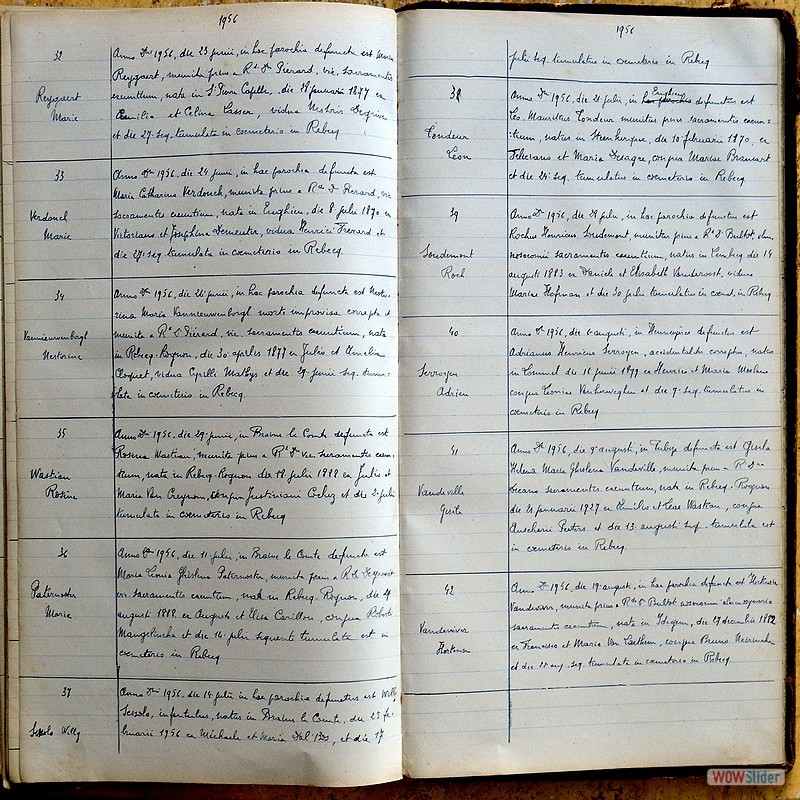 1956
32
Reygaert
Marie
Anno Dni 1956, die 23 junii, in hac parochia defuncta est Maria
Reygaert, munita prius a Rdo Do Pierard, vic, sacramentis
exeuntium, nata in St Pierre Capelle, die 18 januarii 1877 ex
Emilio et Celina Lasser, vidua Nestoris Degrève
et die 27 seq. tumulata in coemeterio in Rebecq
33
Verdonck
Marie
Anno Dni 1956, die 24 junii, in hac parochia defuncta est
Maria Catharina Verdonck, munita prius a Rdo Do Pierard, vic
sacramentis exeuntium, nata in Enghien, die 8 julii 1870 ex
Victoriano et Josephina Demeuter, vidua Henrici Frerard et
die 27 seq. tumulata in coemeterio in Rebecq.
34
Vannieuwenborgh
Nestorine
Anno Dni 1956, die 26 junii, in hac parochia defuncta est Nesto-
rina Maria Vannieuwenborgh morte improvisa correpta et
munita a Rdo Do Piérard, vic. sacramentis exeuntium, nata
in Rebecq-Rognon, die 30 aprilis 1877 ex Julio et Amelia
Cloquet, vidua Cyrilli Mathys et die 29 junii seq. tumu-
lata in coemeterio in Rebecq.
35
Wastiau
Rosine
Anno Dni 1956, die 29 junii, in Braine le Comte defuncta est
Rosina Wastiau, munita prius a Rdo Do vic. sacramentis exeun-
tium, nata in Rebecq-Rognon, die 18 julii 1888 ex Julio et
Maria Van Creynon, conjux Justiniani Cochez et die 2 julii
tumulata in coemeterio in Rebecq
36
Paternoster
Marie
Anno Dni 1956, die 11 julii, in Braine le Comte defuncta est
Maria Leonia Ghislena Paternoster, munita prius a Rdo Do
sacramentis exeuntium, nata in Rebecq-Rognon, die 29
augusti 1888 ex Augusto et Elisa Carillon, conjux Roberti
Mangelinckx et die 14 julii sequente tumulata est in
coemeterio in Rebecq
37
Sessolo Willy
Anno Dni 1956, die 14 julii in hac parochia defunctus est Willy
Sessolo, infantulus, natus in Braine le Comte, die 25 fe-
bruarii 1956 ex Michaele et Maria Dal Bos, et die 17
1956
julii seq. tumulatus in coemeterio in Rebecq
38
Condeur
Léon
Enghien
Anno Dni 1956, die 21 julii, in hac parochia defunctus est
Leo Mauritius Condeur munitus prius sacramentis exeun-
tium, natus in Steenkerque, die 10 februarii 1870, ex
Feliciano et Maria Desagre, conjux Mariae Brancart
et die 24 seq. tumulatus in coemeterio in Rebecq
39
Soudemont
Roch
Anno Dni 1956, die 28 julii, in hac parochia defunctus est
Rochus Henricus Soudemont, munitus prius a Rdo Do Bultot, elem.
nosocomii sacramentis exeuntium, natus in Lembecq die 14
augusti 1883 ex Daniele et Elisabeth Vandervorst, viduus
Mariae Hofman et die 30 julii tumulatus in coemet. in Rebecq
40
Serroyen
Adrien
Anno Dni 1956, die 6 augusti, in Hennuyères defunctus est
Adrianus Henricus Serroyen, accidentalite correptus, natus
in Lommel die 16 junii 1899 ex Henrico et Maria Meelens
conjux Leoniae Vanherweghen et die 9 seq. tumulatus in
coemeterio in Rebecq
41
Vandeville
Gisèle
Anno Dni 1956, die 9 augusti, in Tubize defuncta est Gisela
Helena Maria Ghislena Vandeville, munita prius a Rdo Dno
Decano sacramentis exeuntium, nata in Rebecq-Rognon
die 21 januarii 1927 ex Emilio et Lea Wastiau, conjux
Anscharii Peeters et die 13 augusti seq. tumulata est
in coemeterio in Rebecq.
42
Vandevivere
Hortense
Anno Dni 1956, die 19 augusti, in hac parochia defuncta est Hortensia
Vandevivere, munita prius a Rdo Do Bultot nosocomii eleemosynario
sacramentis exeuntium, nata in Idegem, die 29 decembris 1882
ex Francisco et Maria Van Laethem, conjux Bruno Neirinckx
et die 22 aug. seq. tumulata in coemeterio in Rebecq.
WOWSlider